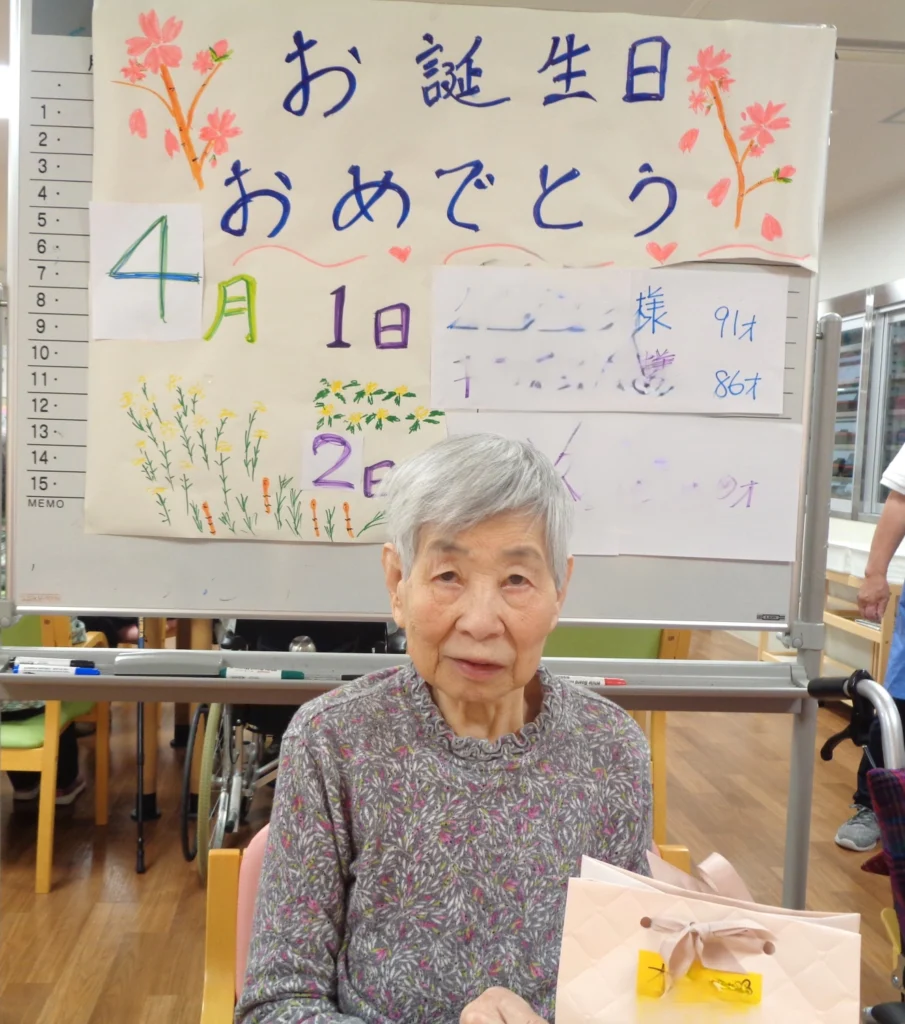 お誕生日
おめでとう
4月 1日
様 91才
様 86才
2日
才
月
1・
2・
3・
4・
5・
6・
7・
8・
9・
10・
11・
12・
13・
14・
15・
MEMO